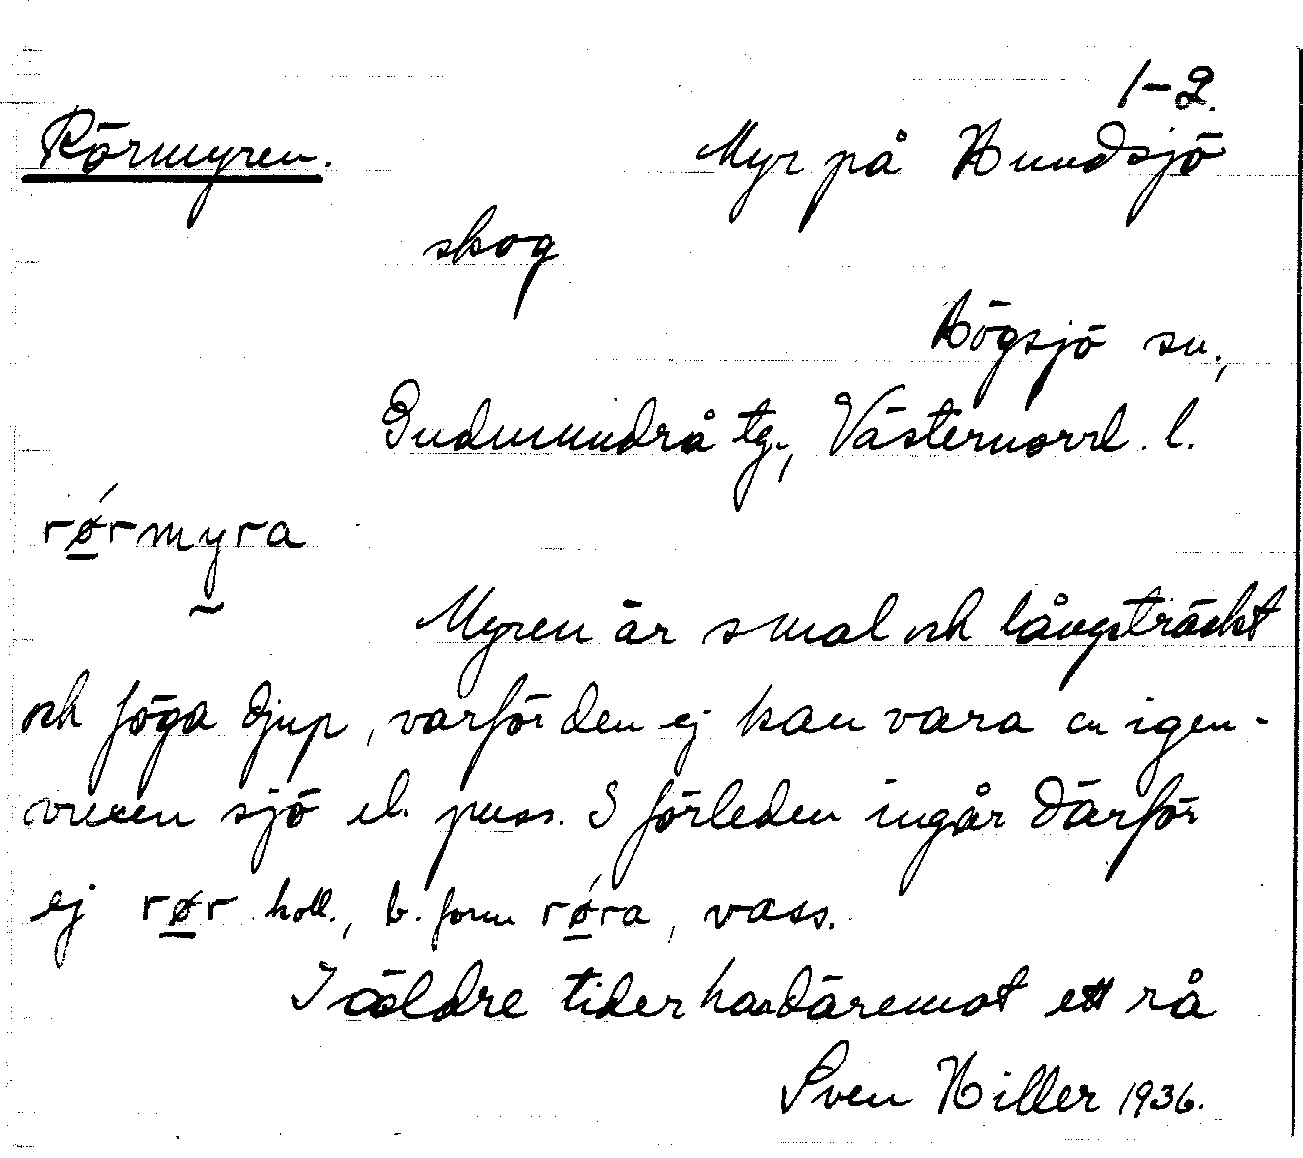 1–2.
Rörmyren. Myr på Hundsjö
skog
Högsjö sn.,
Gudmundrå tg., Västernorrl. l.
rǿrmyra
Myren är smal och långsträckt
och föga djup, varför den ej kan vara en igen-
vuxen sjö el. puss. I förleden ingår därför
ej rør koll., b. form rǿra, vass.
I äldre tider har däremot ett rå
Sven Hiller 1936.